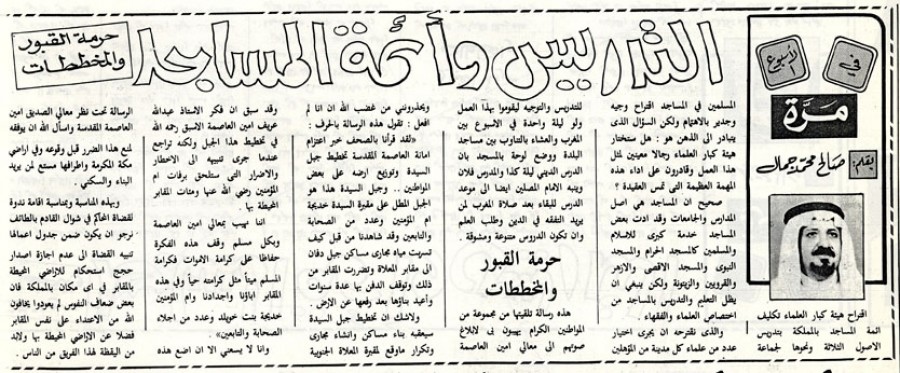 في
الأسبوع
مرة
بقلم: صالح محمد جمال
التدريس وأئمة المساجد
حرمة القبور
والمخططات
اقتراح هيئة كبار العلماء تكليف
ائمة المساجد بالمملكة بتدريس
الاصول الثلاثة ونحوها لجماعة
المسلمين في المساجد اقتراح وجيه
وجدير بالاهتمام ولكن السؤال الذى
يتبادر الى الذهن هو : هل ستختار
هيئة كبار العلماء رجالا معينين لمثل
هذا العمل وقادرون على اداء هذه
المهمة العظيمة التى تمس العقيدة ؟
صحيح ان المساجد هي اصل
المدارس والجامعات وقد ادت بعض
المساجد خدمة كبرى للاسلام
والمسلمين كالمسجد الحرام والمسجد
النبوى والمسجد الاقصى والازهر
والقرويين والزيتونة ولكن ينبغي ان
يظل التعليم والتدريس بالمساجد من
اختصاص العلماء والفقهاء
والذى نقترحه ان يجرى اختيار
عدد من علماء كل مدينة من المؤهلين
للتدريس والتوجيه ليقوموا بهذا العمل
ولو ليلة واحدة في الاسبوع بين
المغرب والعشاء بالتناوب بين مساجد
البلدة ووضع لوحة بالمسجد بان
الدرس الديني ليلة كذا والمدرس فلان
وينبه الامام المصلين ايضا الى موعد
الدرس للبقاء بعد صلاة المغرب لمن
يريد التفقه في الدين وطلب العلم
وان تكون الدروس متنوعة ومشوقة .
حرمة القبور
والمخططات
هذه رسالة تلقيتها من مجموعة من
المواطنين الكرام يهيبون بى لابلاغ
صوتهم الى معالي امين العاصمة
ويحذرونني من غضب الله ان انا لم
افعل : تقول هذه الرسالة بالحرف :
«لقد قرأنا بالصحف خبر اعتزام
امانة العاصمة المقدسة تخطيط جبل
السيدة وتوزيع ارضه على بعض
المواطنين .. وجبل السيدة هذا هو
الجبل المطل على مقبرة السيدة خديجة
ام المؤمنين وعدد من الصحابة
والتابعين وقد شاهدنا من قبل كيف
تسربت مياه مجارى مساكن جبل دفان
الى مقابر المعلاة وتضررت المقابر من
ذلك وتوقف الدفن بها عدة سنوات
وأعيد بناؤها بعد رفعها عن الارض .
ولاشك ان تخطيط جبل السيدة
سيعقبه بناء مساكن وانشاء مجارى
وتكرار ماوقع لمقبرة المعلاة الجنوبية
وقد سبق ان فكر الاستاذ عبدالله
عريف امين العاصمة الاسبق رحمه الله
في تخطيط هذا الجبل ولكنه تراجع
عندما جرى تنبيهه الى الاخطار
والاضرار التى ستلحق برفات ام
المؤمنين رضي الله عنها ومئات المقابر
المحيطة بها .
اننا نهيب بمعالي امين العاصمة
وبكل مسلم وقف هذه الفكرة
حفاظا على كرامة الاموات فكرامة
المسلم ميتاً مثل كرامته حياً وفي هذه
المقابر اباؤنا واجدادنا وام المؤمنين
خديجة بنت خويلد وعدد من اجلاء
الصحابة والتابعين» .
وانا لا يسعني الا ان اضع هذه
الرسالة تحت نظر معالي الصديق امين
العاصمة المقدسة واسأل الله ان يوفقه
لمنع هذا الضرر قبل وقوعه وفي اراضي
مكة المكرمة واطرافها متسع لمن يريد
البناء والسكنى .
وبهذه المناسبة وبمناسبة اقامة ندوة
لقضاة المحاكم في شوال القادم بالطائف
نرجو ان يكون ضمن جدول اعمالها
تنبيه القضاة الى عدم اجازة اصدار
حجج استحكام للاراضي المحيطة
بالمقابر في اى مكان بالمملكة فان
بعض ضعاف النفوس لم يعودوا يخافون
الله من الاعتداء على نفس المقابر
فضلا عن الاراضي المحيطة بها ولابد
من اليقظة لهذا الفريق من الناس .